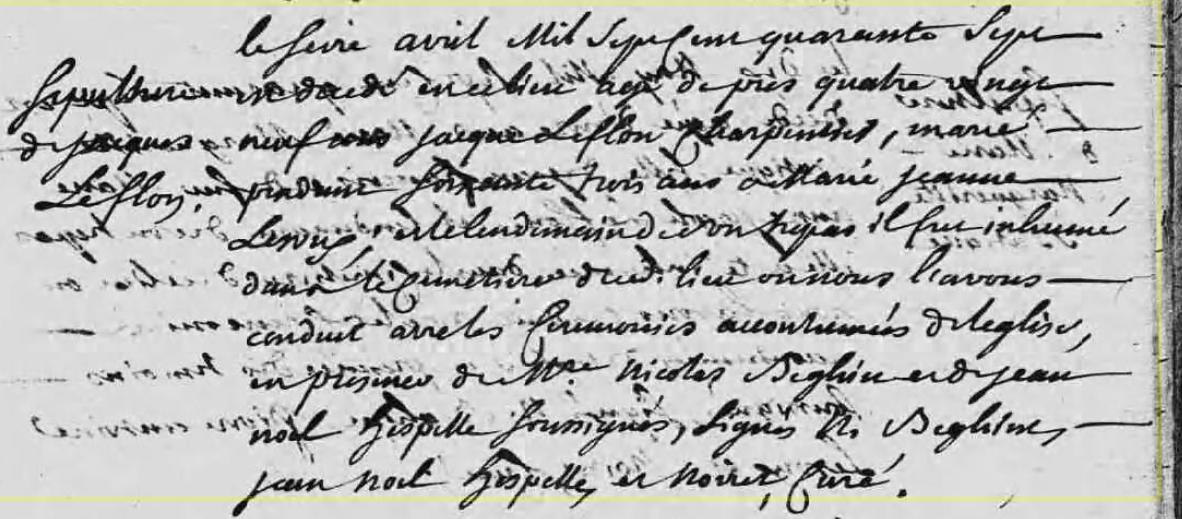 le seize avril Mil Sept Cent quarante Sept
Sepulthure est decedé en ce lieu agé de près quatre vingt
de Jacques neuf ans Jacque Leflon Charpentier, marié
Leflon. pendant soixante trois ans a Marie jeanne
et le lendemain de son trepas il fut inhumé
dans le Cimetière dudit lieu ou nous l'avons
conduit avec les Ceremonies accoutumées de l'eglise,
en presence de Mtre Nicolas Beghin et de jean
noel hespelle soussignés, signés N. Beghin,
jean noel hespelle, et noiret, Curé.